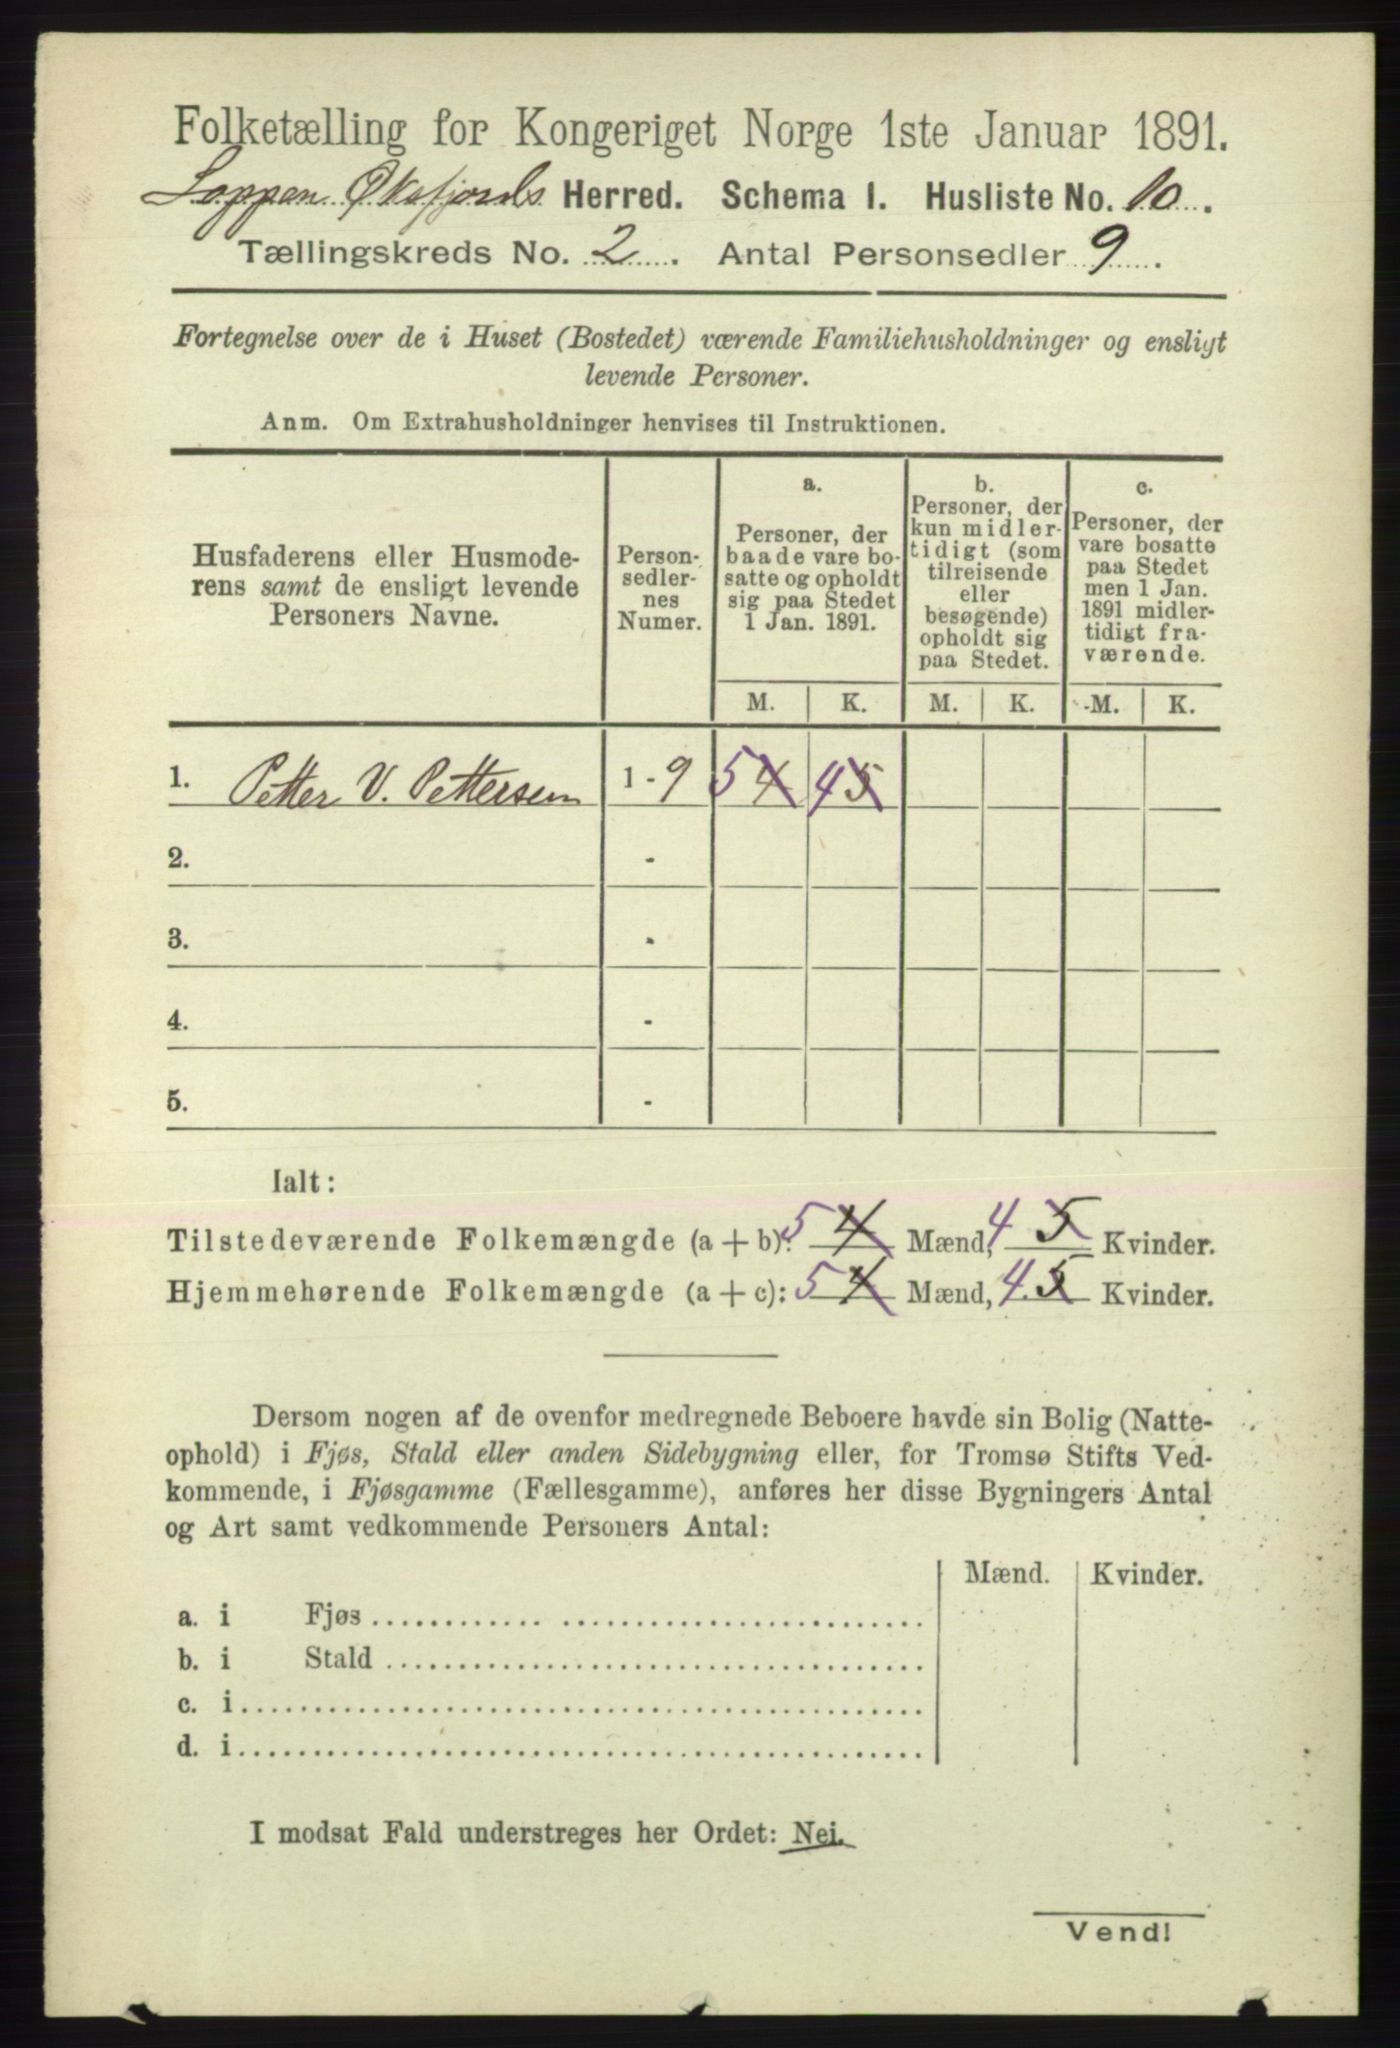 Folketælling for Kongeriget Norge 1ste Januar 1891.
Loppen Øksfjords Herred. Schema I. Husliste No. 10.
Tællingskreds No. 2. Antal Personsedler 9.
Fortegnelse over de i Huset (Bostedet) værende Familiehusholdninger og ensligt
levende Personer.
Anm. Om Extrahusholdninger henvises til Instruktionen.
Husfaderens eller Husmode-
rens samt de ensligt levende
Personers Navne.
Person-
sedler-
nes
Numer.
a.
Personer, der
baade vare bo-
satte og opholdt
sig paa Stedet
1 Jan. 1891.
b.
Personer, der
kun midler-
tidigt (som
tilreisende
eller
besøgende)
opholdt sig
paa Stedet.
c.
Personer, der
vare bosatte
paa Stedet
men 1 Jan.
1891 midler-
tidigt fra-
værende.
M. K. M. K. M. K.
1. Petter V. Pettersen 1-9 5 4 4 5
2. -
3. -
4. -
5. -
Ialt:
Tilstedeværende Folkemængde (a + b): 5 4 Mænd, 4 5 Kvinder.
Hjemmehørende Folkemængde (a + c): 5 4 Mænd, 4 5 Kvinder.
Dersom nogen af de ovenfor medregnede Beboere havde sin Bolig (Natte-
ophold) i Fjøs, Stald eller anden Sidebygning eller, for Tromsø Stifts Ved-
kommende, i Fjøsgamme (Fællesgamme), anføres her disse Bygningers Antal
og Art samt vedkommende Personers Antal:
Mænd. Kvinder.
a. i Fjøs
b. i Stald
c. i
d. i
I modsat Fald understreges her Ordet: Nei.
Vend!